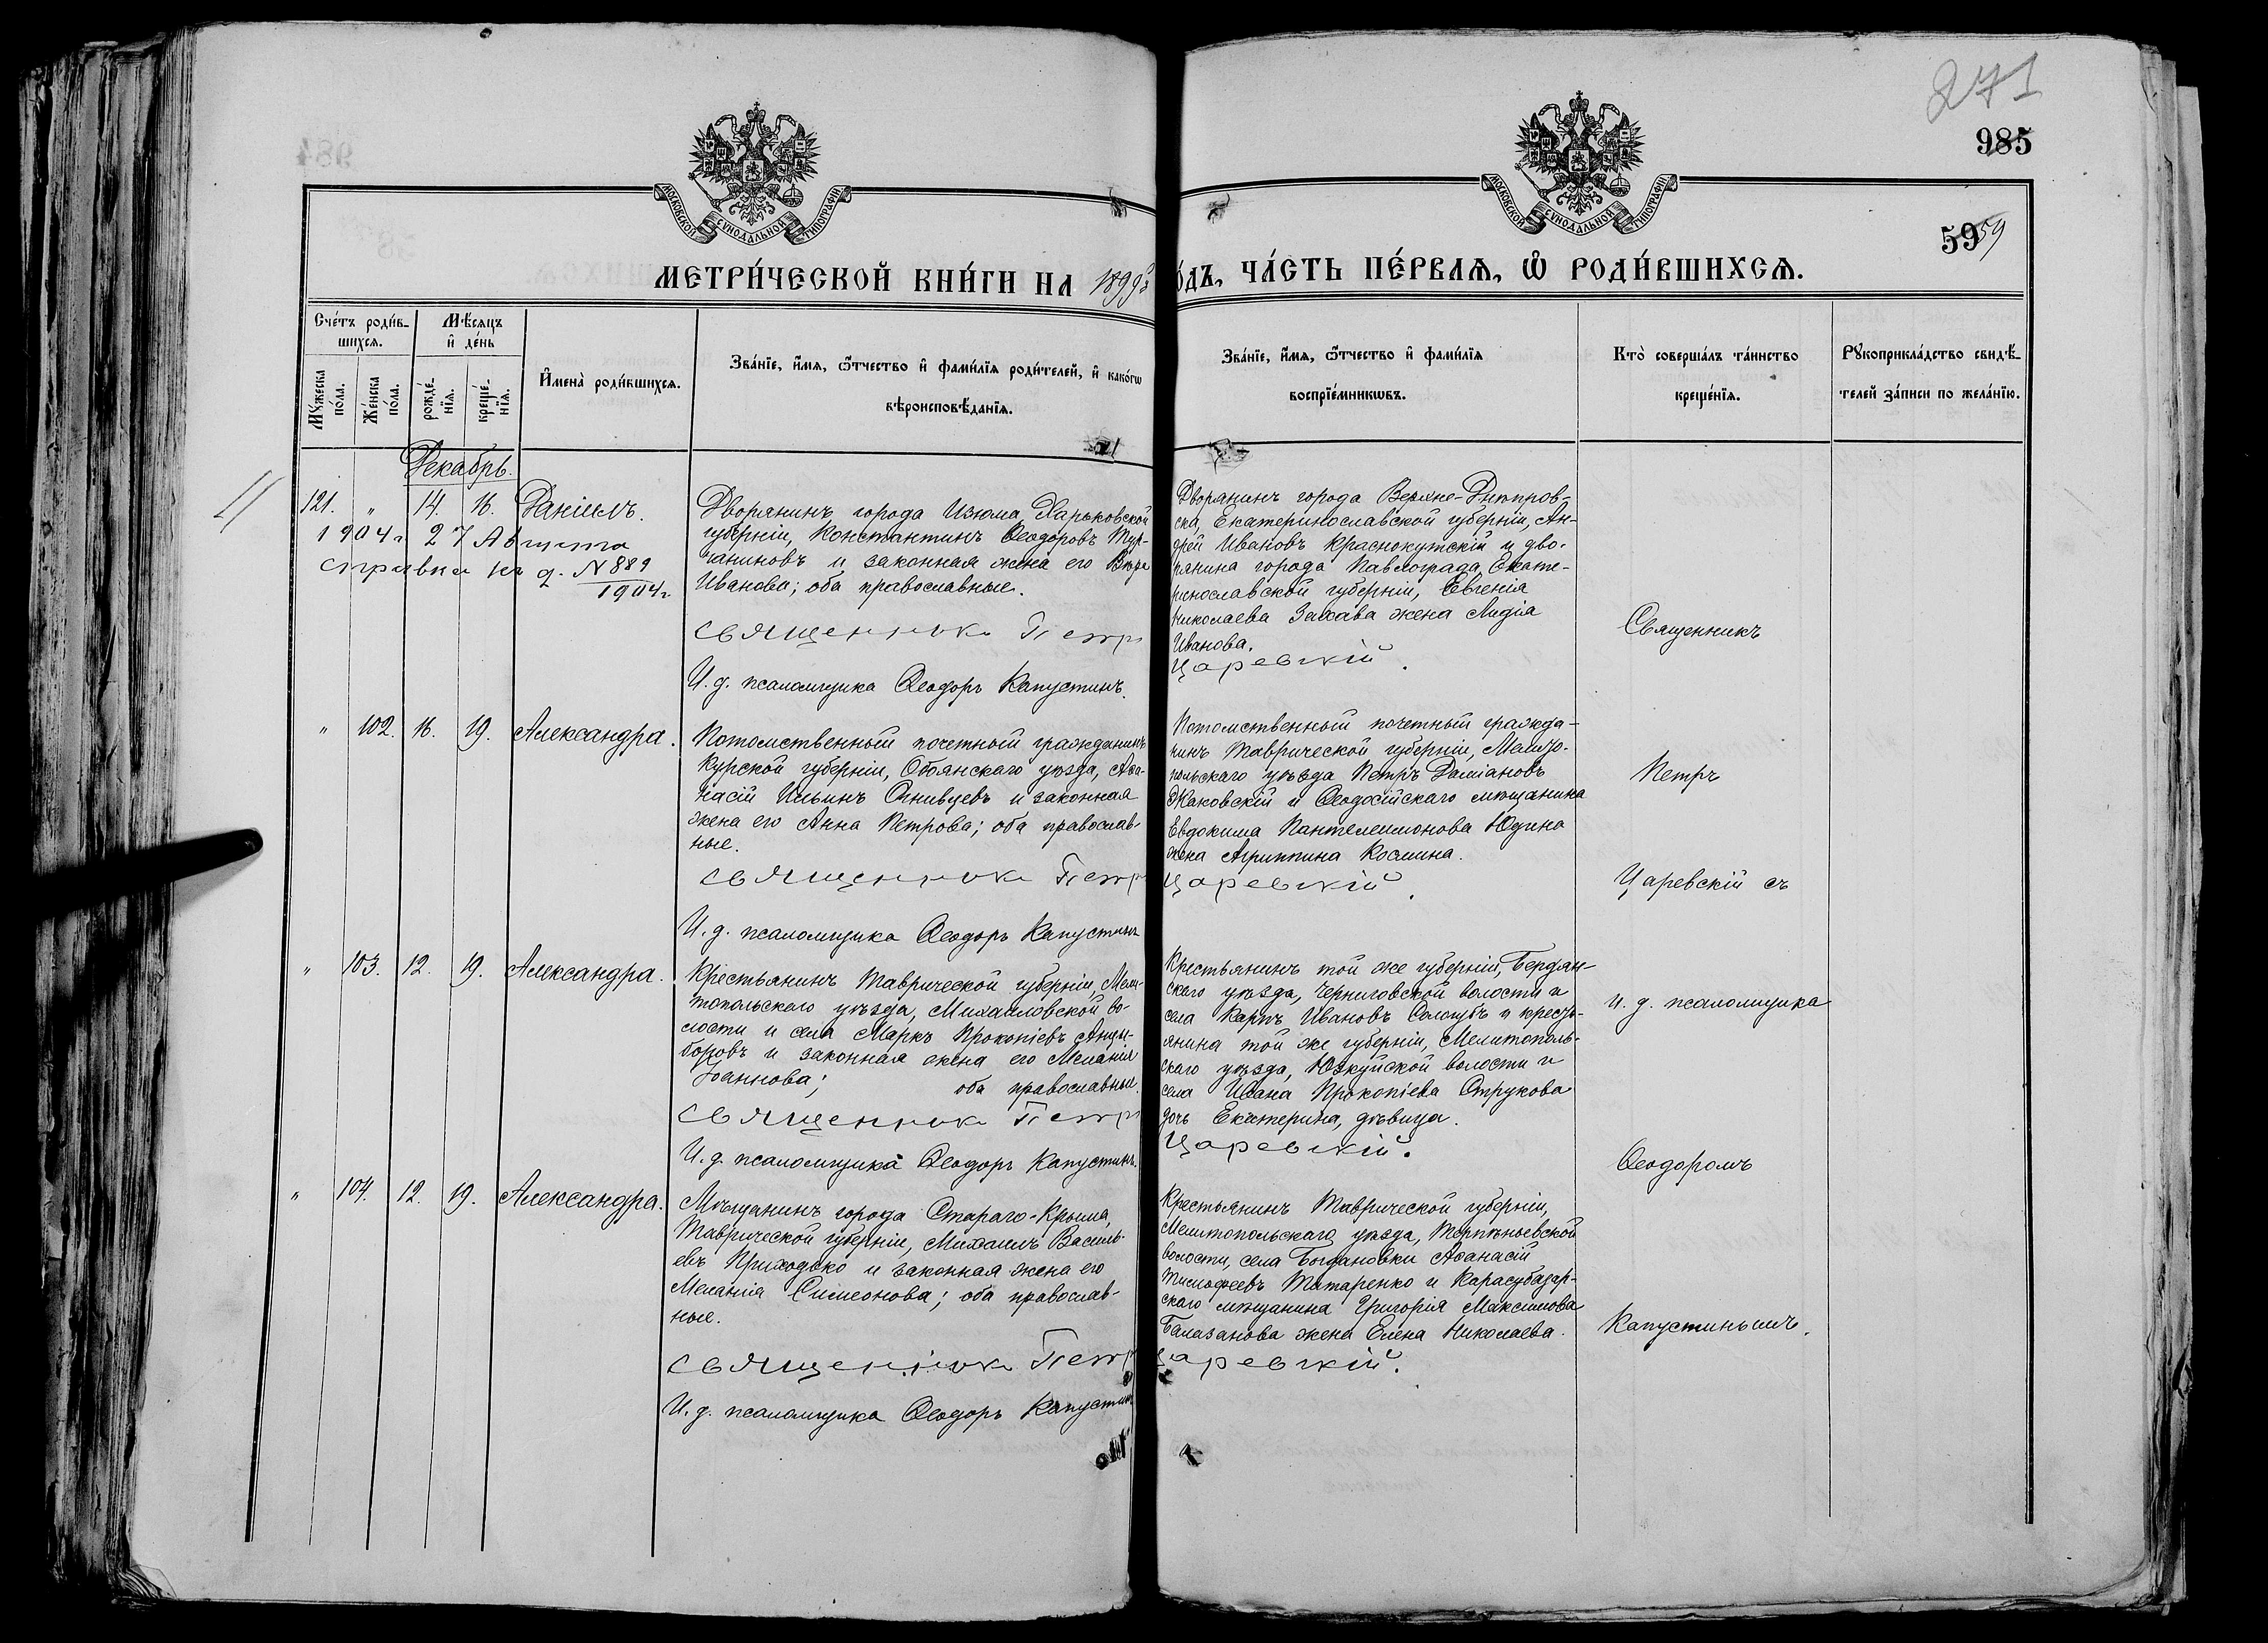 271
985
59 59
МОСКОВСКОЙ СУНОДАЛЬНОЙ ТИПОГРАФІИ
МОСКОВСКОЙ СУНОДАЛЬНОЙ ТИПОГРАФІИ
МЕТРИ́ЧЕСКОЙ КНИ́ГИ НА 1899
О́ДЪ, ЧА́СТЬ ПЕ́РВАЯ, Ѽ РОДИ́ВШИХСЯ.
Сче́тъ роди́в-
шихся.
Мѣ́сяцъ
и҆ де́нь
Мꙋ́жеска
по́ла.
Же́нска
по́ла.
рожде́-
нїя.
креще́-
нїя.
И҆мена̀ роди́вшихся.
Зва́нїе, и҆́мя, ѻ҆́тчество и҆ фами́лїя роди́телей, и҆ како́гѡ
вѣроисповѣ́данїя.
Зва́нїе, и҆́мя, ѻ҆́тчество и҆ фами́лїя
воспрїе́мникѡвъ.
Кто̀ соверша́лъ та́инство
креще́нїя.
Рꙋкоприкла́дство свидѣ́-
телей за́писи по жела́нїю.
Декабрь.
121. " 14. 16. Даніилъ.
1904 г. 27 Августа
справка къ д. N 889
1904 г.
Дворянинъ города Изюма Харьковской
губерніи, Константинъ Ѳеодоровъ Тур-
чаниновъ и законная жена его Вѣра
Иванова; оба православные.
Священникъ Петръ
И. д. псаломщика Ѳеодоръ Капустинъ.
Дворянинъ города Верхне-Днѣпров-
ска, Екатеринославской губерніи, Ан-
дрей Ивановъ Краснокутскій и дво-
рянина города Павлограда, Екате-
ринославской губерніи, Евгенія
Николаева Захава жена Лидія
Иванова.
Царевскій.
" 102. 16. 19. Александра.
Потомственный почетный гражданинъ
Курской губерніи, Обоянскаго уѣзда, Аѳа-
насій Ильинъ Огнивцевъ и законная
жена его Анна Петрова; оба православ-
ные.
Священникъ Петръ
И. д. псаломщика Ѳеодоръ Капустинъ
Потомственный почетный гражда-
нинъ Таврической губерніи, Мелито-
польскаго уѣзда Петръ Даміановъ
Жаковскій и Ѳеодосійскаго мѣщанина
Евдокима Пантелеимонова Юдина
жена Агриппина Космина.
Царевскій.
" 103. 12. 19. Александра.
Крестьянинъ Таврической губерніи, Мели-
топольскаго уѣзда, Михайловской во-
лости и села Маркъ Прокопіевъ Анцы-
боровъ и законная жена его Меланія
Іоаннова; оба православные.
Священникъ Петръ
И. д. псаломщика Ѳеодоръ Капустинъ.
Крестьянинъ той же губерніи, Бердян-
скаго уѣзда, Черниговской волости и
села Карпъ Ивановъ Сологубъ и кресть-
янина той же губерніи, Мелитополь-
скаго уѣзда, Юзкуйской волости и
села Ивана Прокопіева Струкова
дочь Екатерина, дѣвица.
Царевскій.
" 104. 12. 19. Александра.
Мѣщанинъ города Стараго-Крыма,
Таврической губерніи, Михаилъ Василь-
евъ Приходько и законная жена его
Меланія Симеонова; оба православ-
ные.
Священникъ Петръ
И. д. псаломщика Ѳеодоръ Капустинъ
Крестьянинъ Таврической губерніи,
Мелитопольскаго уѣзда, Терпѣньевской
волости, села Богдановки Аѳанасій
Тимоѳеевъ Татаренко и Карасубазар-
скаго мѣщанина Григорія Максимова
Балазанова жена Елена Николаева.
Царевскій.
Священникъ
Петръ
Царевскій съ
и. д. псаломщика
Ѳеодоромъ
Капустинымъ.